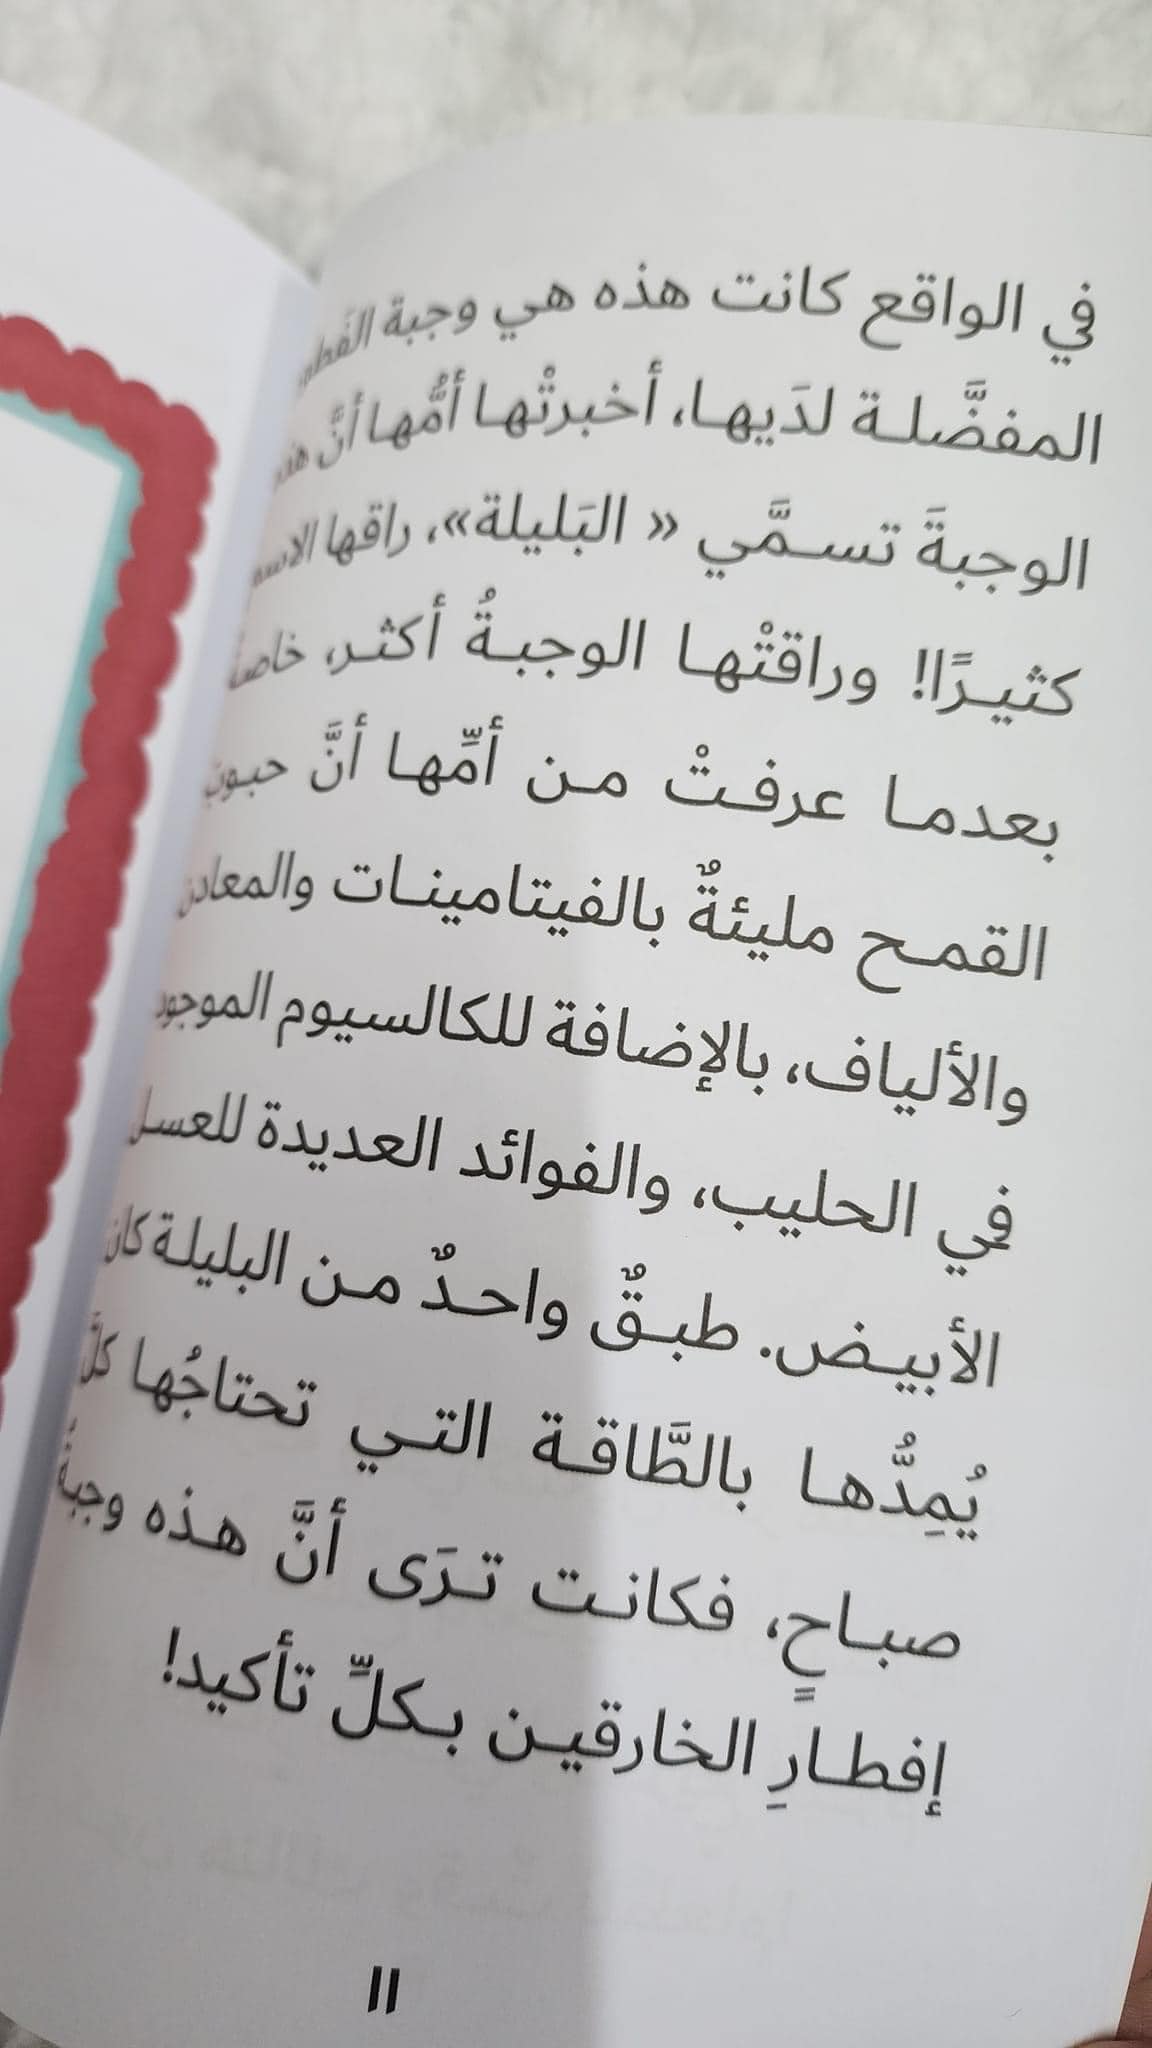 في الواقع كانت هذه هي وجبة
المفضَّلة لدَيها، أخبرتْها أمُّها أنَّ
الوجبةَ تسمَّي « البَليلة»، راقها
كثيرًا! وراقتْها الوجبةُ أكثر، خاصةً
بعدما عرفتْ من أمِّها أنَّ حبوب
القمح مليئةٌ بالفيتامينات والمعادن
والألياف، بالإضافة للكالسيوم الموجود
في الحليب، والفوائد العديدة للعسل
الأبيض. طبقٌ واحدٌ من البليلة كان
يُمِدُّها بالطَّاقة التي تحتاجُها كلَّ
صباحٍ، فكانت ترَى أنَّ هذه وجبةُ
إفطارِ الخارقين بكلِّ تأكيد!
11